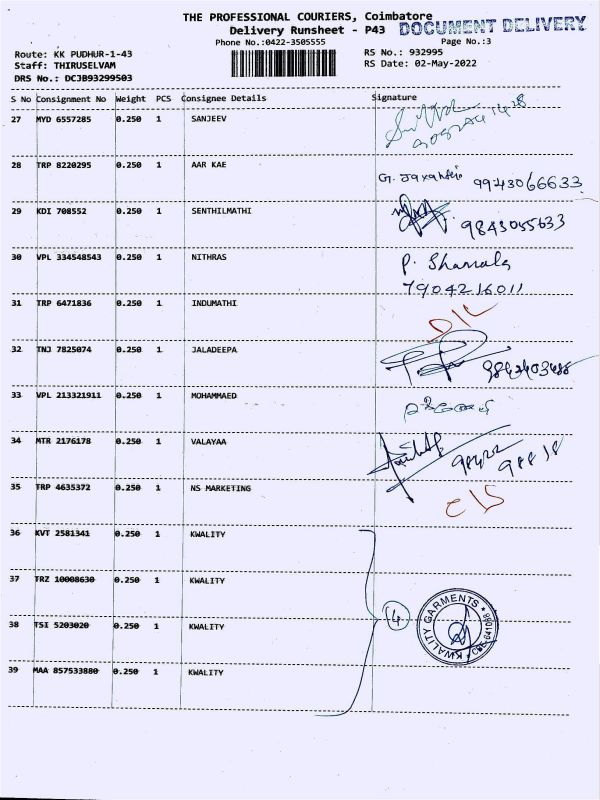 THE PROFESSIONAL COURIERS, Coimbatore
Delivery Runsheet - P43 DOCUMENT DELIVERY
Phone No.:0422-3505555 Page No.:3
Route: KK PUDHUR-1-43 RS No.: 932995
Staff: THIRUSELVAM RS Date: 02-May-2022
DRS No.: DCJB93299503
S No Consignment No Weight PCS Consignee Details Signature
27 MYD 6557285 0.250 1 SANJEEV
28 TRP 8220295 0.250 1 AAR KAE
9943066633
29 KDI 708552 0.250 1 SENTHILMATHI
9843055633
30 VPL 334548543 0.250 1 NITHRAS P. Shamala
7904216011
31 TRP 6471836 0.250 1 INDUMATHI
D/L
32 TNJ 7825074 0.250 1 JALADEEPA
33 VPL 213321911 0.250 1 MOHAMMAED
34 MTR 2176178 0.250 1 VALAYAA
98422
98818
35 TRP 4635372 0.250 1 NS MARKETING
36 KVT 2581341 0.250 1 KWALITY
37 TRZ 10008630 0.250 1 KWALITY
4 KWALITY GARMENTS
38 TSI 5203020 0.250 1 KWALITY
39 MAA 857533880 0.250 1 KWALITY